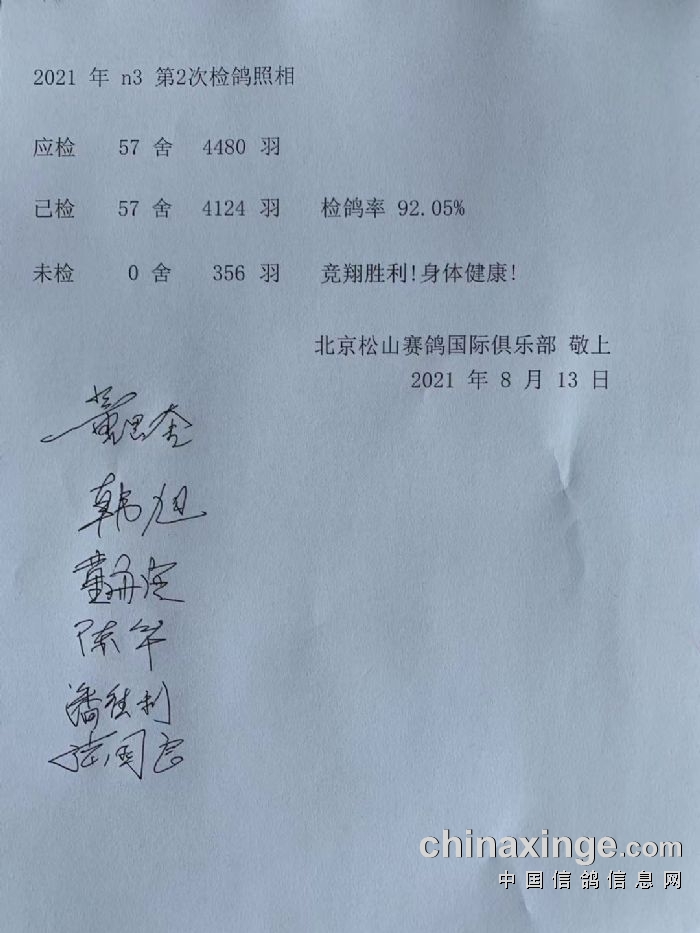 2021 年 n3 第2次检鸽照相
应检 57 舍 4480 羽
已检 57 舍 4124 羽 检鸽率 92.05%
未检 0 舍 356 羽 竞翔胜利!身体健康!
北京松山赛鸽国际俱乐部 敬上
2021 年 8 月 13 日
韩旭
陈军
潘胜利
chinaxinge.com
中国信鸽信息网